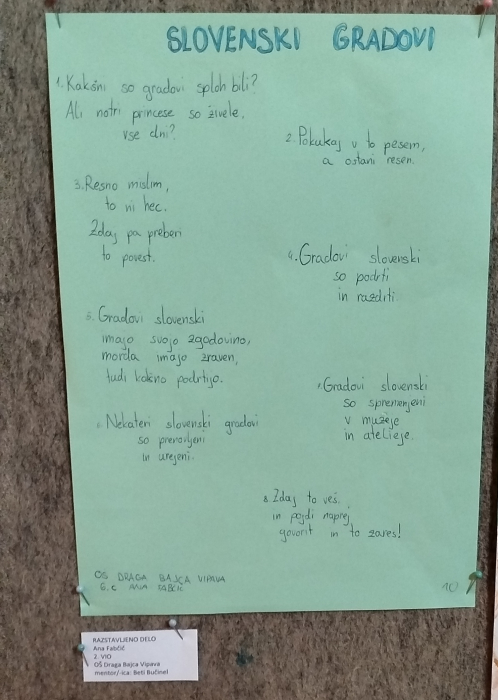 SLOVENSKI GRADOVI
1. Kakšni so gradovi sploh bili?
Ali notri princese so živele,
vse dni?
2. Pokukaj v to pesem,
a ostani resen.
3. Resno mislim,
to ni hec.
Zdaj pa preberi
to povest.
4. Gradovi slovenski
so podrti
in razdrti
5. Gradovi slovenski
imajo svojo zgodovino,
morda imajo zraven,
tudi kakšno podrtijo.
Nekateri slovenski gradovi
so prenovljeni
in urejeni.
Gradovi slovenski
so spremenjeni
v muzeje
in ateljeje.
8. Zdaj to veš,
in pojdi naprej
govorit in to zares!
OŠ DRAGA BAJCA VIPAVA
6. c ANA FABČIČ
10
RAZSTAVLJENO DELO
Ana Fabčič
2. VIO
OŠ Draga Bajca Vipava
mentor/-ica: Beti Bučinel